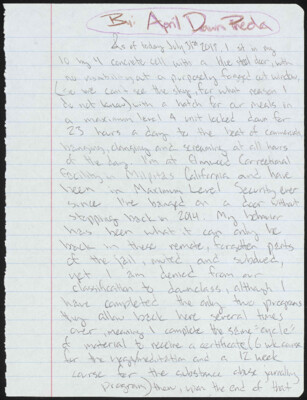 By: April Dawn
As of today July 31st 2017, I sit in my
10 by 4 concrete cell with a blue steel door, with
no ventilation, a purposely fogged out window
so we can't see the sky, for what reason I
do not know) with a hatch for our meals in
a maximum level 4 unit locked down for
23 hours a day to the beat of comrads
banging, and screaming at all hours
of the day. I'm at Elmwood Correctional
Facility in Milpitas California and have
been in Maximum Level Security ever
since I've banged on a door
stepping back in 2014. My behavior
has been what it can only be
back in these remote, forgotten parts
of the jail, muted and subdued,
yet I am denied from our
classification to downclass, although I
have completed the only two programs
they allow back here several times
over, meaning I complete the same "cycle"
of material to receive a certificate (6 wk course
for the and a 12 week
course for the substance abuse journaling
program) then, when the end of that